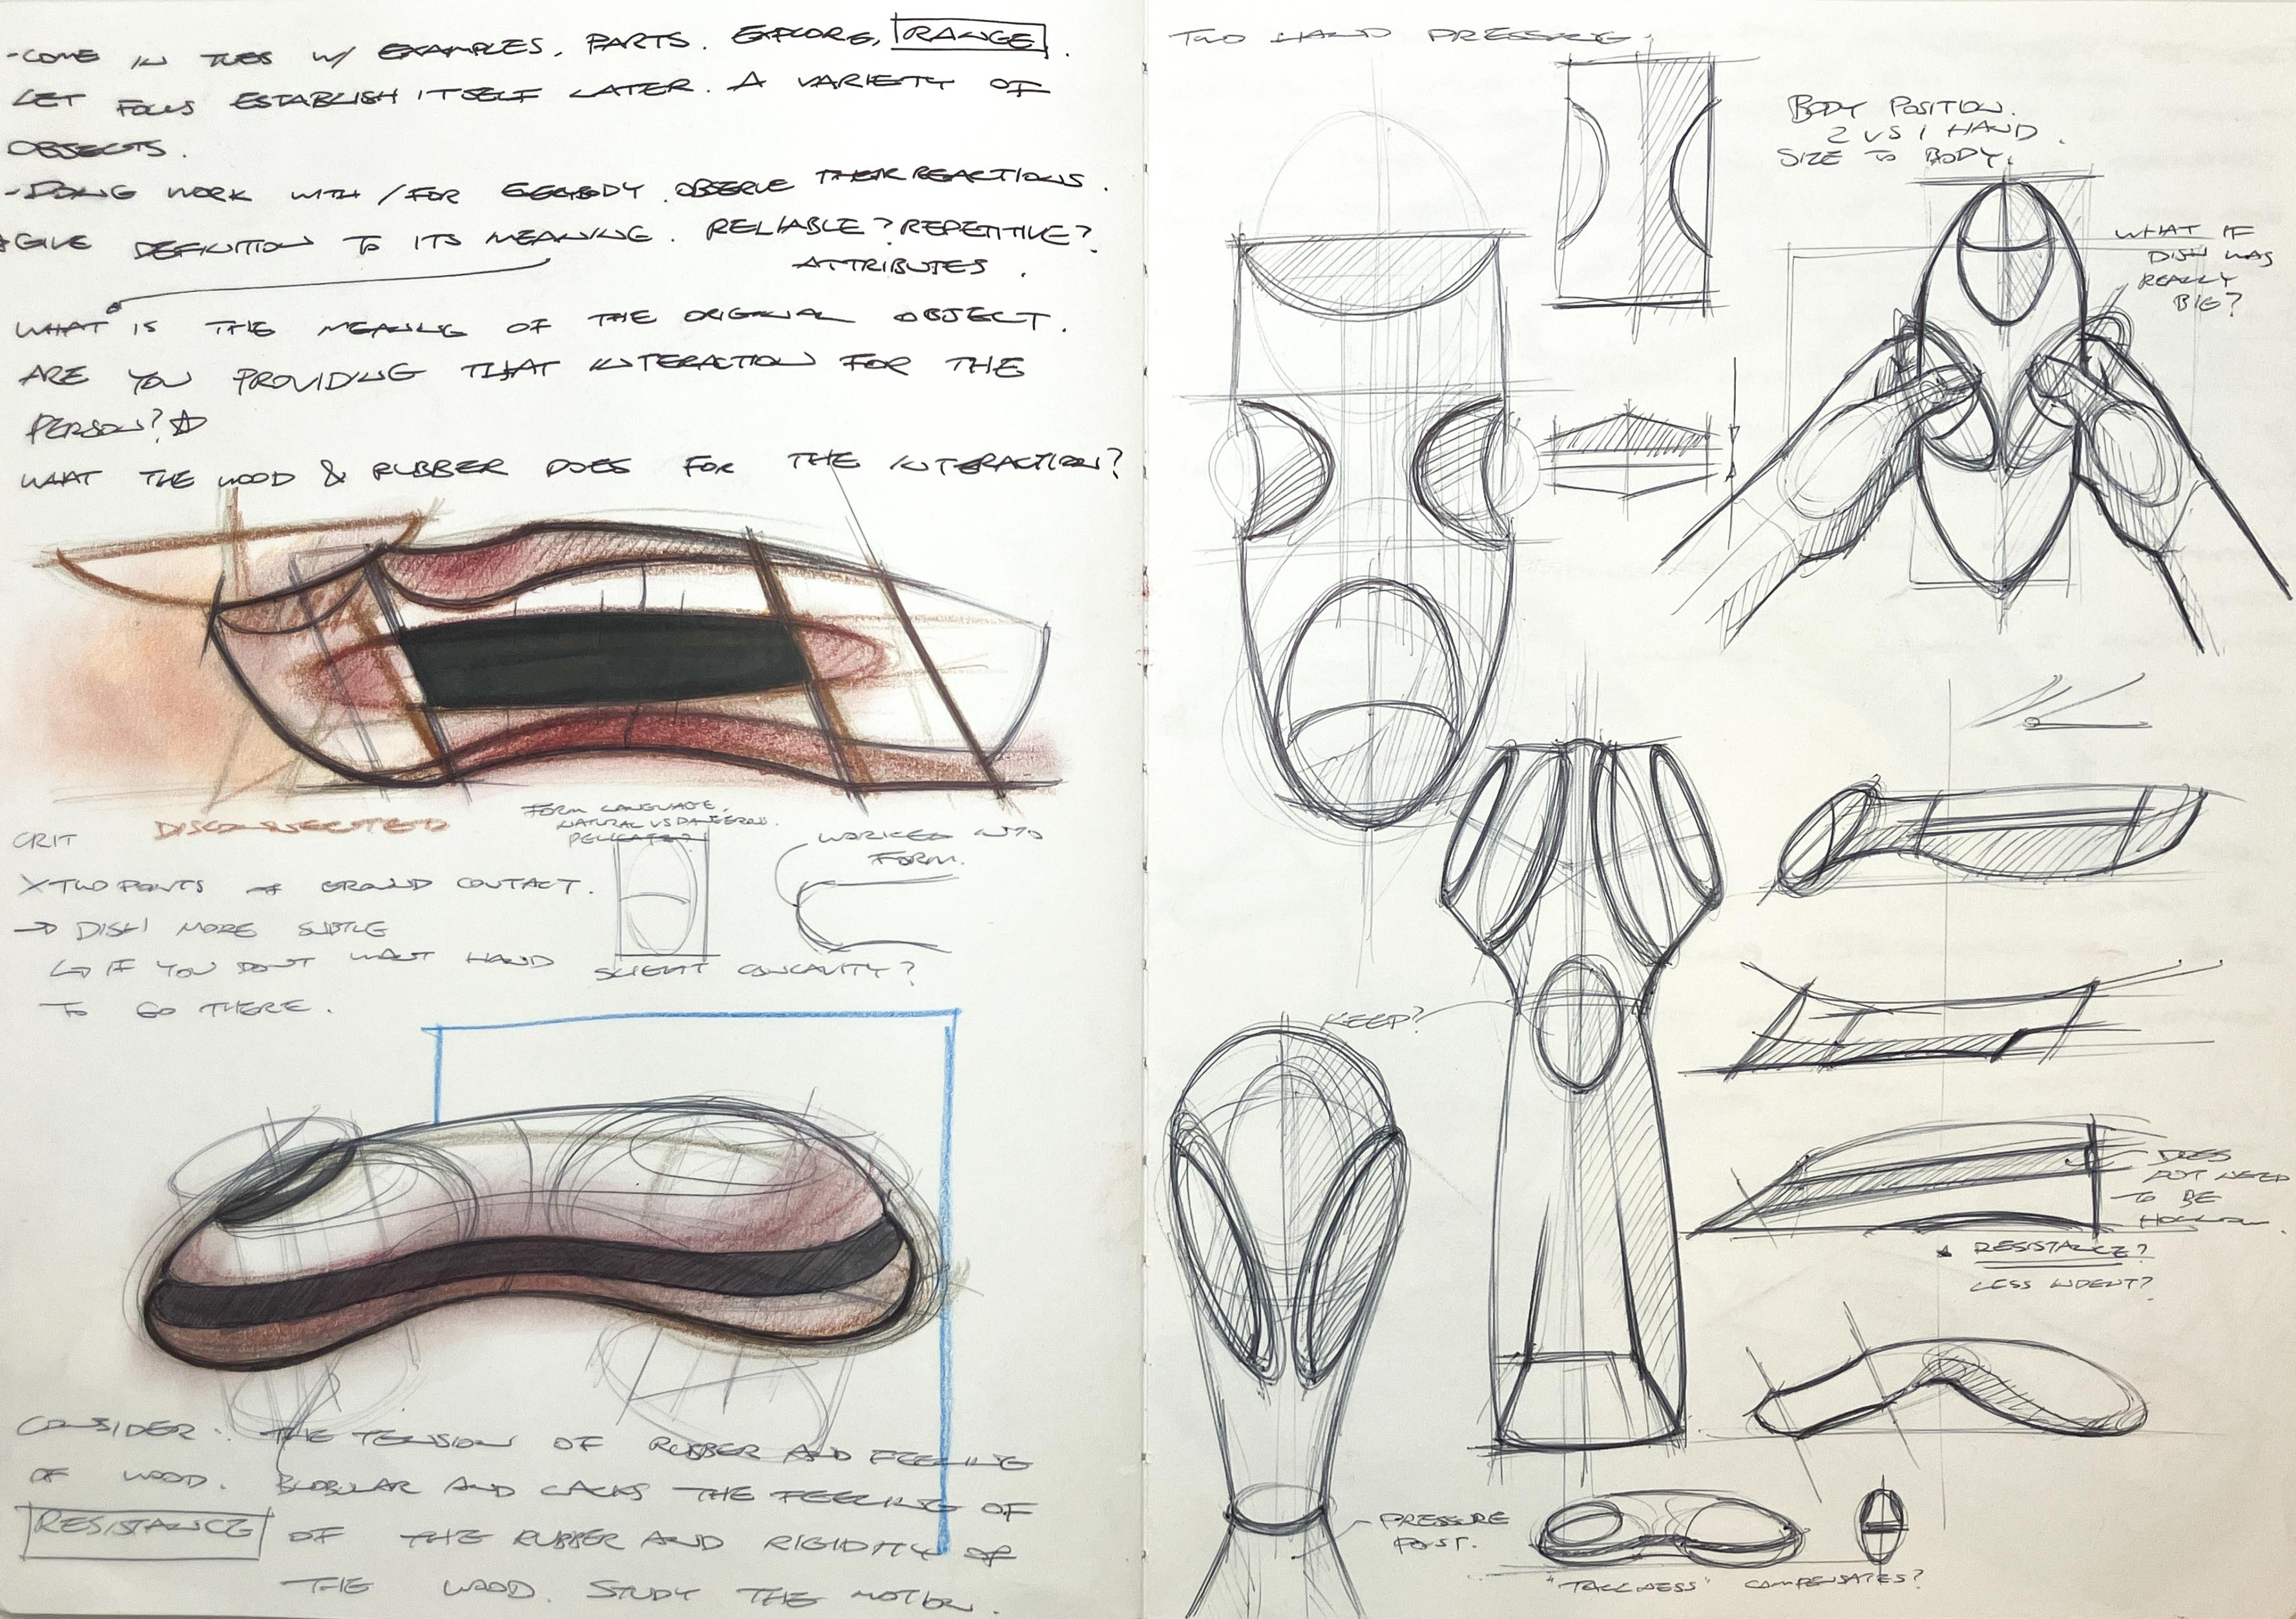 -COME IN TUES W/ EXAMPLES, PARTS. EXPLORE, RANGE.
LET FOCUS ESTABLISH ITSELF LATER. A VARIETY OF
OBJECTS.
-DOING WORK WITH/FOR OBSERVE THEIR REACTIONS.
GIVE DEFINITION TO ITS MEANING. RELIABLE? REPETITIVE?
ATTRIBUTES.
WHAT IS THE MEANING OF THE ORIGINAL OBJECT.
ARE YOU PROVIDING THAT INTERACTION FOR THE
PERSON? ☆
WHAT THE WOOD & RUBBER DOES FOR THE INTERACTION?
DISCONNECTED
FORM LANGUAGE.
NATURAL VS DANGEROUS.
DELICATE?
WORKED INTO
FORM.
CRIT
X TWO POINTS OF GROUND CONTACT.
→ DISH MORE SUBTLE
↳ IF YOU DON'T WANT HAND
TO GO THERE.
SLIGHT CONCAVITY?
CONSIDER: THE TENSION OF RUBBER AND FEELING
OF WOOD. BLOBULAR AND LACKS THE FEELING OF
RESISTANCE OF THE RUBBER AND RIGIDITY OF
THE WOOD. STUDY THE MOTION.
TWO HAND PRESSING.
BODY POSITION.
2 VS 1 HAND.
SIZE TO BODY.
WHAT IF
DISH WAS
REALLY
BIG?
KEEP?
DOES
NOT NEED
TO BE
HOLLOW.
RESISTANCE?
LESS INDENT?
PRESSURE
POINT.
"TALLNESS" COMPENSATES?